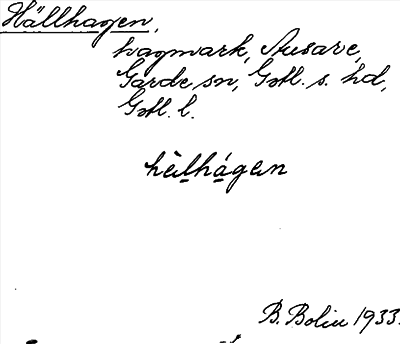 Hällhagen,
hagmark, Ausarve,
Garde sn, Gotl. s. hd,
Gotl. l.
hèi̲lhá̲gen
B. Bolin 1933.